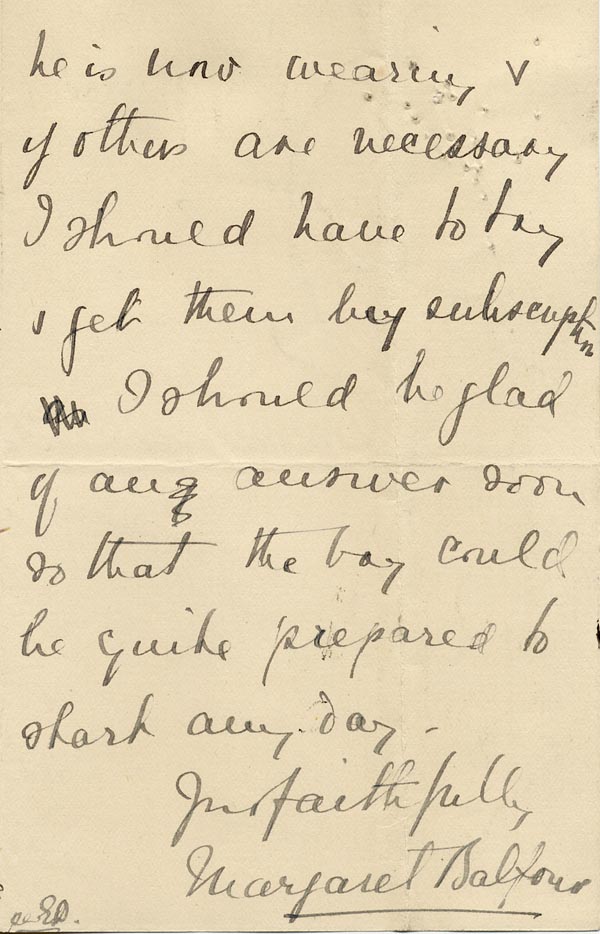 he is now wearing &
if others are necessary
I should have to try
& get them by subscription
I should be glad
of an answer soon
so that the boy could
be quite prepared to
start any day -
Yrs faithfully
Margaret Balfour